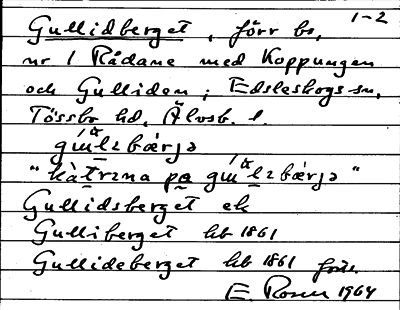 1-2
Gullidberget, förr bs,
nr 1 Rådane med Koppungen
och Gulliden; Edsleskogs sn,
Tössbo hd, Älvsb. l.
"kàtrɪna pa
Gullidsberget ek
Gulliberget hb 1861
Gullideberget hb 1861
E. Rosen 1964